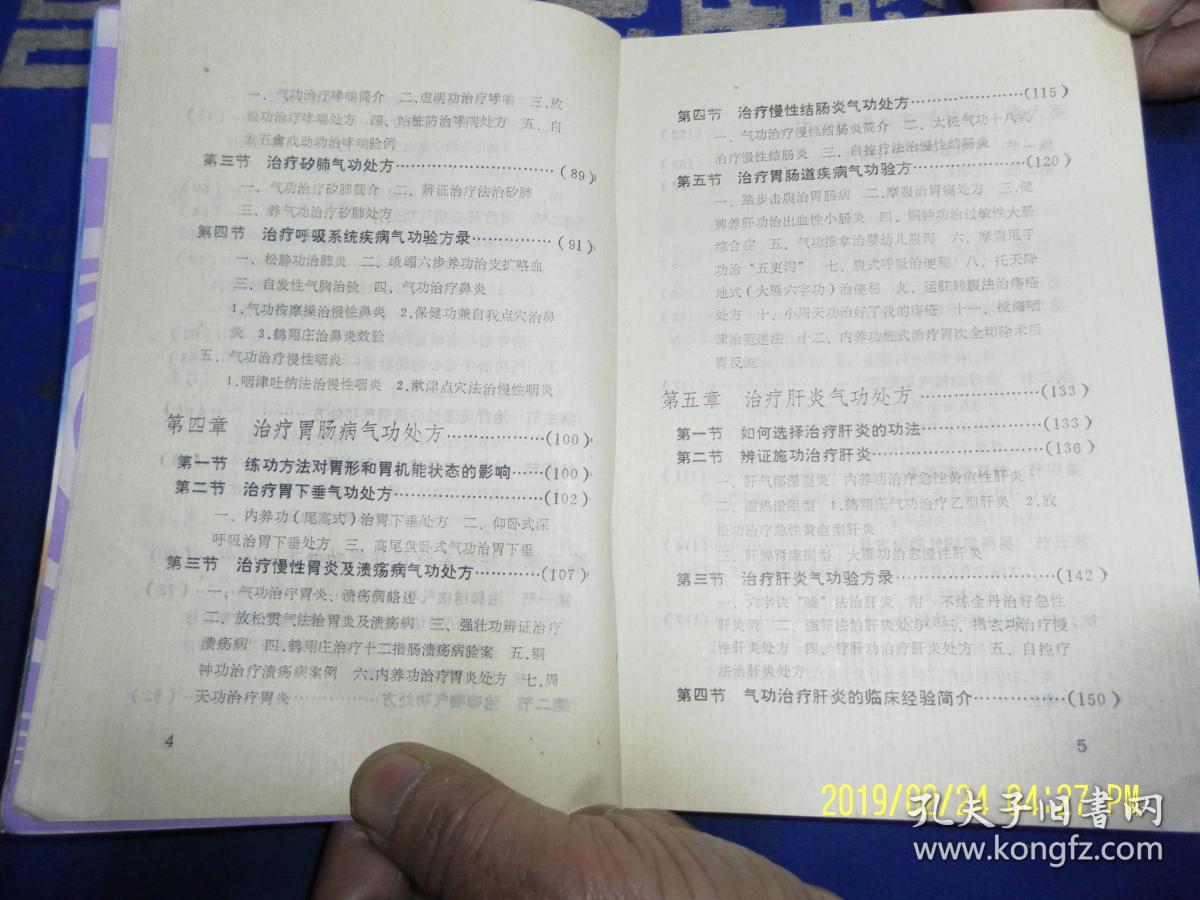 一、气功治疗哮喘简介 二、虚明功治疗哮喘 三、放
松功治疗哮喘处方 四、站桩防治哮喘处方 五、自
发五禽戏动功治哮喘验例
第三节 治疗矽肺气功处方……………………(89)
一、气功治疗矽肺简介 二、辨证治疗法治矽肺
三、养气功治疗矽肺处方
第四节 治疗呼吸系统疾病气功验方录……………(91)
一、松静功治肺炎 二、峨嵋六步养功治支扩咯血
三、自发性气胸治验 四、气功治疗鼻炎
1.气功按摩操治慢性鼻炎 2.保健功兼自我点穴治鼻
炎 3.鹤翔庄治鼻炎效验
五、气功治疗慢性咽炎
1.咽津吐纳法治慢性咽炎 2.漱津点穴法治慢性咽炎
第四章 治疗胃肠病气功处方………………(100)
第一节 练功方法对胃形和胃机能状态的影响……(100)
第二节 治疗胃下垂气功处方……………………(102)
一、内养功(尾高式)治胃下垂处方 二、仰卧式深
呼吸治胃下垂处方 三、高尾盘卧式气功治胃下垂
第三节 治疗慢性胃炎及溃疡病气功处方…………(107)
一、气功治疗胃炎、溃疡病略述
二、放松贯气法治胃炎及溃疡病 三、强壮功辨证治疗
溃疡病 四、鹤翔庄治疗十二指肠溃疡病验案 五、铜
钟功治疗溃疡病案例 六、内养功治疗胃炎处方 七、周
天功治疗胃炎
4
第四节 治疗慢性结肠炎气功处方…………………(115)
一、气功治疗慢性结肠炎简介 二、太极气功十八式
治疗慢性结肠炎 三、自控疗法治慢性结肠炎
第五节 治疗胃肠道疾病气功验方…………………(120)
一、踏步击腹治胃肠病 二、摩腹治胃痛处方 三、健
脾养肝功治出血性小肠炎 四、铜钟功治过敏性大肠
综合症 五、气功推拿治婴幼儿腹泻 六、摩腹甩手
功治“五更泻” 七、腹式呼吸治便秘 八、托天降
地式(大雁六字功)治便秘 九、运肛转腹法治痔疮
处方 十、小周天功治好了我的痔疮 十一、搅海咽
津治呃逆法 十二、内养功桩式治疗胃次全切除术后
胃反流
第五章 治疗肝炎气功处方…………………(133)
第一节 如何选择治疗肝炎的功法…………………(133)
第二节 辨证施功治疗肝炎…………………………(136)
一、肝气郁滞型炎 内养功治疗急性黄疸性肝炎
二、湿热淤阻型 1.鹤翔庄气功治疗乙型肝炎 2.放
松功治疗急性黄疸型肝炎
三、肝脾肾虚损型 大雁功治愈慢性肝炎
第三节 治疗肝炎气功验方录………………………(142)
一、六字诀“嘘”法治肝炎 附 不练金丹治好急性
肝炎例 二、强肝法治肝炎处方 三、指玄功治疗慢
性肝炎处方 四、疗肝功治疗肝炎处方 五、自控疗
法治肝炎处方
第四节 气功治疗肝炎的临床经验简介……………(150)
5
孔夫子旧书网
www.kongfz.com